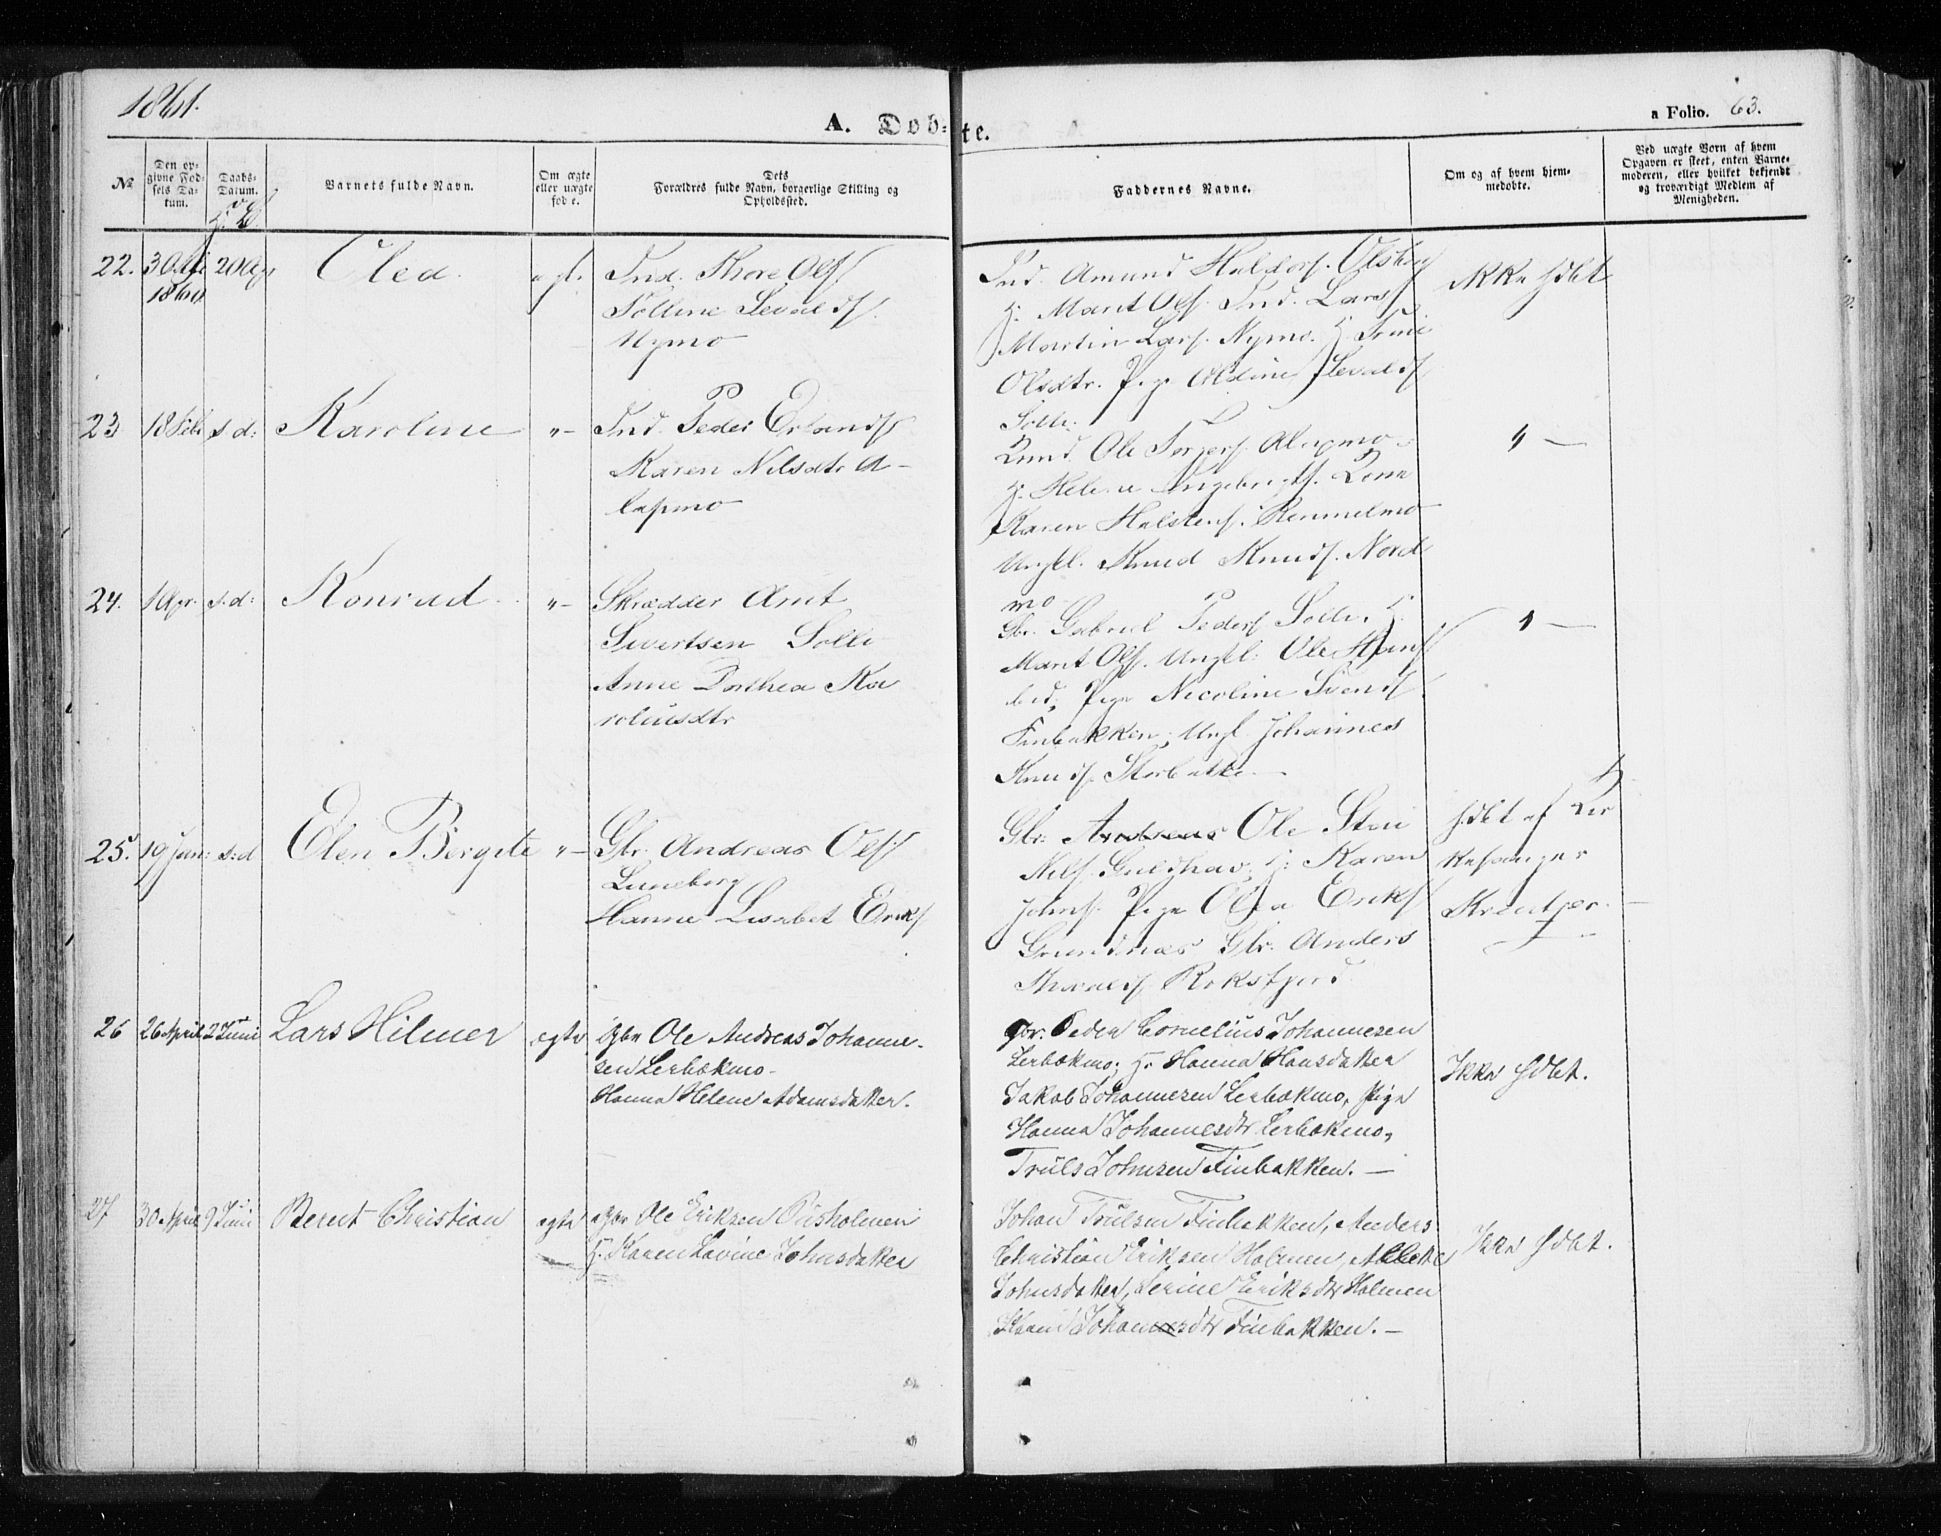 1861.
A. Døb=
te.
a Folio. 63.
№
Den op-
givne Fød-
sels Da-
tum.
Daabs-
Datum.
Barnets fulde Navn.
Om ægte
eller uægte
fød e.
Dets
Forældres fulde Navn, borgerlige Stilling og
Opholdssted.
Faddernes Navne.
Om og af hvem hjem-
medøbte.
Ved uægte Børn af hvem
Opgaven er skeet, enten Barne-
moderen, eller hvilket bekjendt
og troværdigt Medlem af
Menigheden.
22.
1860
Olea
Ind. Thore Ols.
Nymo
Ind. Amund Haldors. Olsborg
H: Marit Ols. Ind. Lars
Martin Lars. Nymo. H:
Olsdtr. Pige
Solli.
ikke hdbt
23
18 Feb.
s. d:
Karoline
"—
Ind. Peder Erlands.
Karen Nilsdtr A-
lapmo
Ole Torgers. Alapmo
H: Helena Ingebrigts.
Karen Halstens. Rummelmo
Ungkl. Knud Knuds. Nord
mo
" —
24.
1 Apr.
s. d:
Konrad
"—
Skrædder Arnt
Sivertsen Solli
Anne Dorthea Ka
roliusdtr
Gbr. Gabriel Peders. Solli, H:
Marit Ols. Ungkl: Ole Hans.
ibid; Pige Nicoline Svends.
Finbakken; Ungk. Johannes
Knuds. Storbakke
" —
25.
19 Jan:
s: d
Elen Bergite
"—
Gbr. Andreas Ols.
Luneborg
Hanne Lisabet Eriks.
Gbr. Andreas Ole Steen
Nils. Guldhav; H: Karen
Johns. Pige Olea Eriks.
Grundnæs Gbr. Anders
Roksfjord
Hdbt af Kir
kesanger
Kræmer.
26
26 April
2 Juni
Lars Hilmer
egte
Gbr Ole Andreas Johanne-
sen Lerbækmo-
Hanna Helene Adamsdatter.
Gbr. Peder Cornelius Johannesen
Lerbækmo; H. Hanna Hansdatter
Jakob Johannesen Lerbækmo, Pige
Hanna Johannesdtr Lerbækmo,
Truls Johnsen Finbakken. —
Ikke Hdbt.
27
30 April
9 Juni
Berent Christian
egte
Gbr Ole Eriksen
H. Karen Lovine Johnsdatter
Johan Trulsen Finbakken, Anders
Christian Eriksen Holmen,
Johnsdatter, Serine Eriksdtr Holmen
Johannesdtr Finbakken. —
Ikke Hdbt.